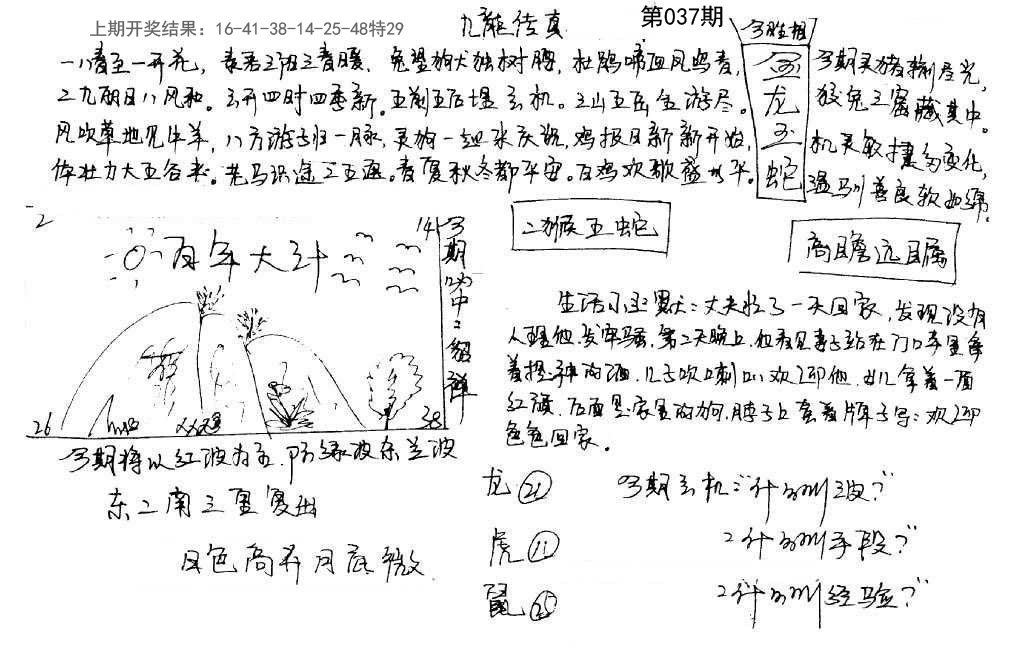 上期开奖结果：16-41-38-14-25-48特29
九龍传真
第037期
今期生相
一八春至一开花，
春暖，兔望狗犬独树腰，杜鹃啼血风鸣春，
今期灵猪输尽光，
龙
二九朝日八风和。玄开四时四季新。五前五后埋玄机。三山五岳全游尽。
狡兔三窟藏其中。
玉
风吹草地见牛羊，八方游子归一脉，灵狗一起来庆祝，鸡报日新新开始，
机灵敏捷多变化，
蛇
体壮力大五谷丰。老马识途三五遍。春夏秋冬都平安。百鸡欢歌盛世华。
温驯善良软如绵。
二猴五蛇
高瞻远瞩
2
14
百年大计
今期
中
26
38
生活小幽默：丈夫忙了一天回家，发现没有
人理他，发牢骚，第二天晚上，他看见妻子站在门口手里拿
着提神的酒，儿子吹喇叭欢迎他，女儿拿着一面
红旗，后面是家里的狗，脖子上套着牌子写：欢迎
色色回家。
今期将以红波为主，防绿波杀兰波
东二南三重复出
日色高升月底微
龙 21
虎 11
鼠 25
今期玄机："什么叫 ？"
"什么叫手段？"
"什么叫经验？"